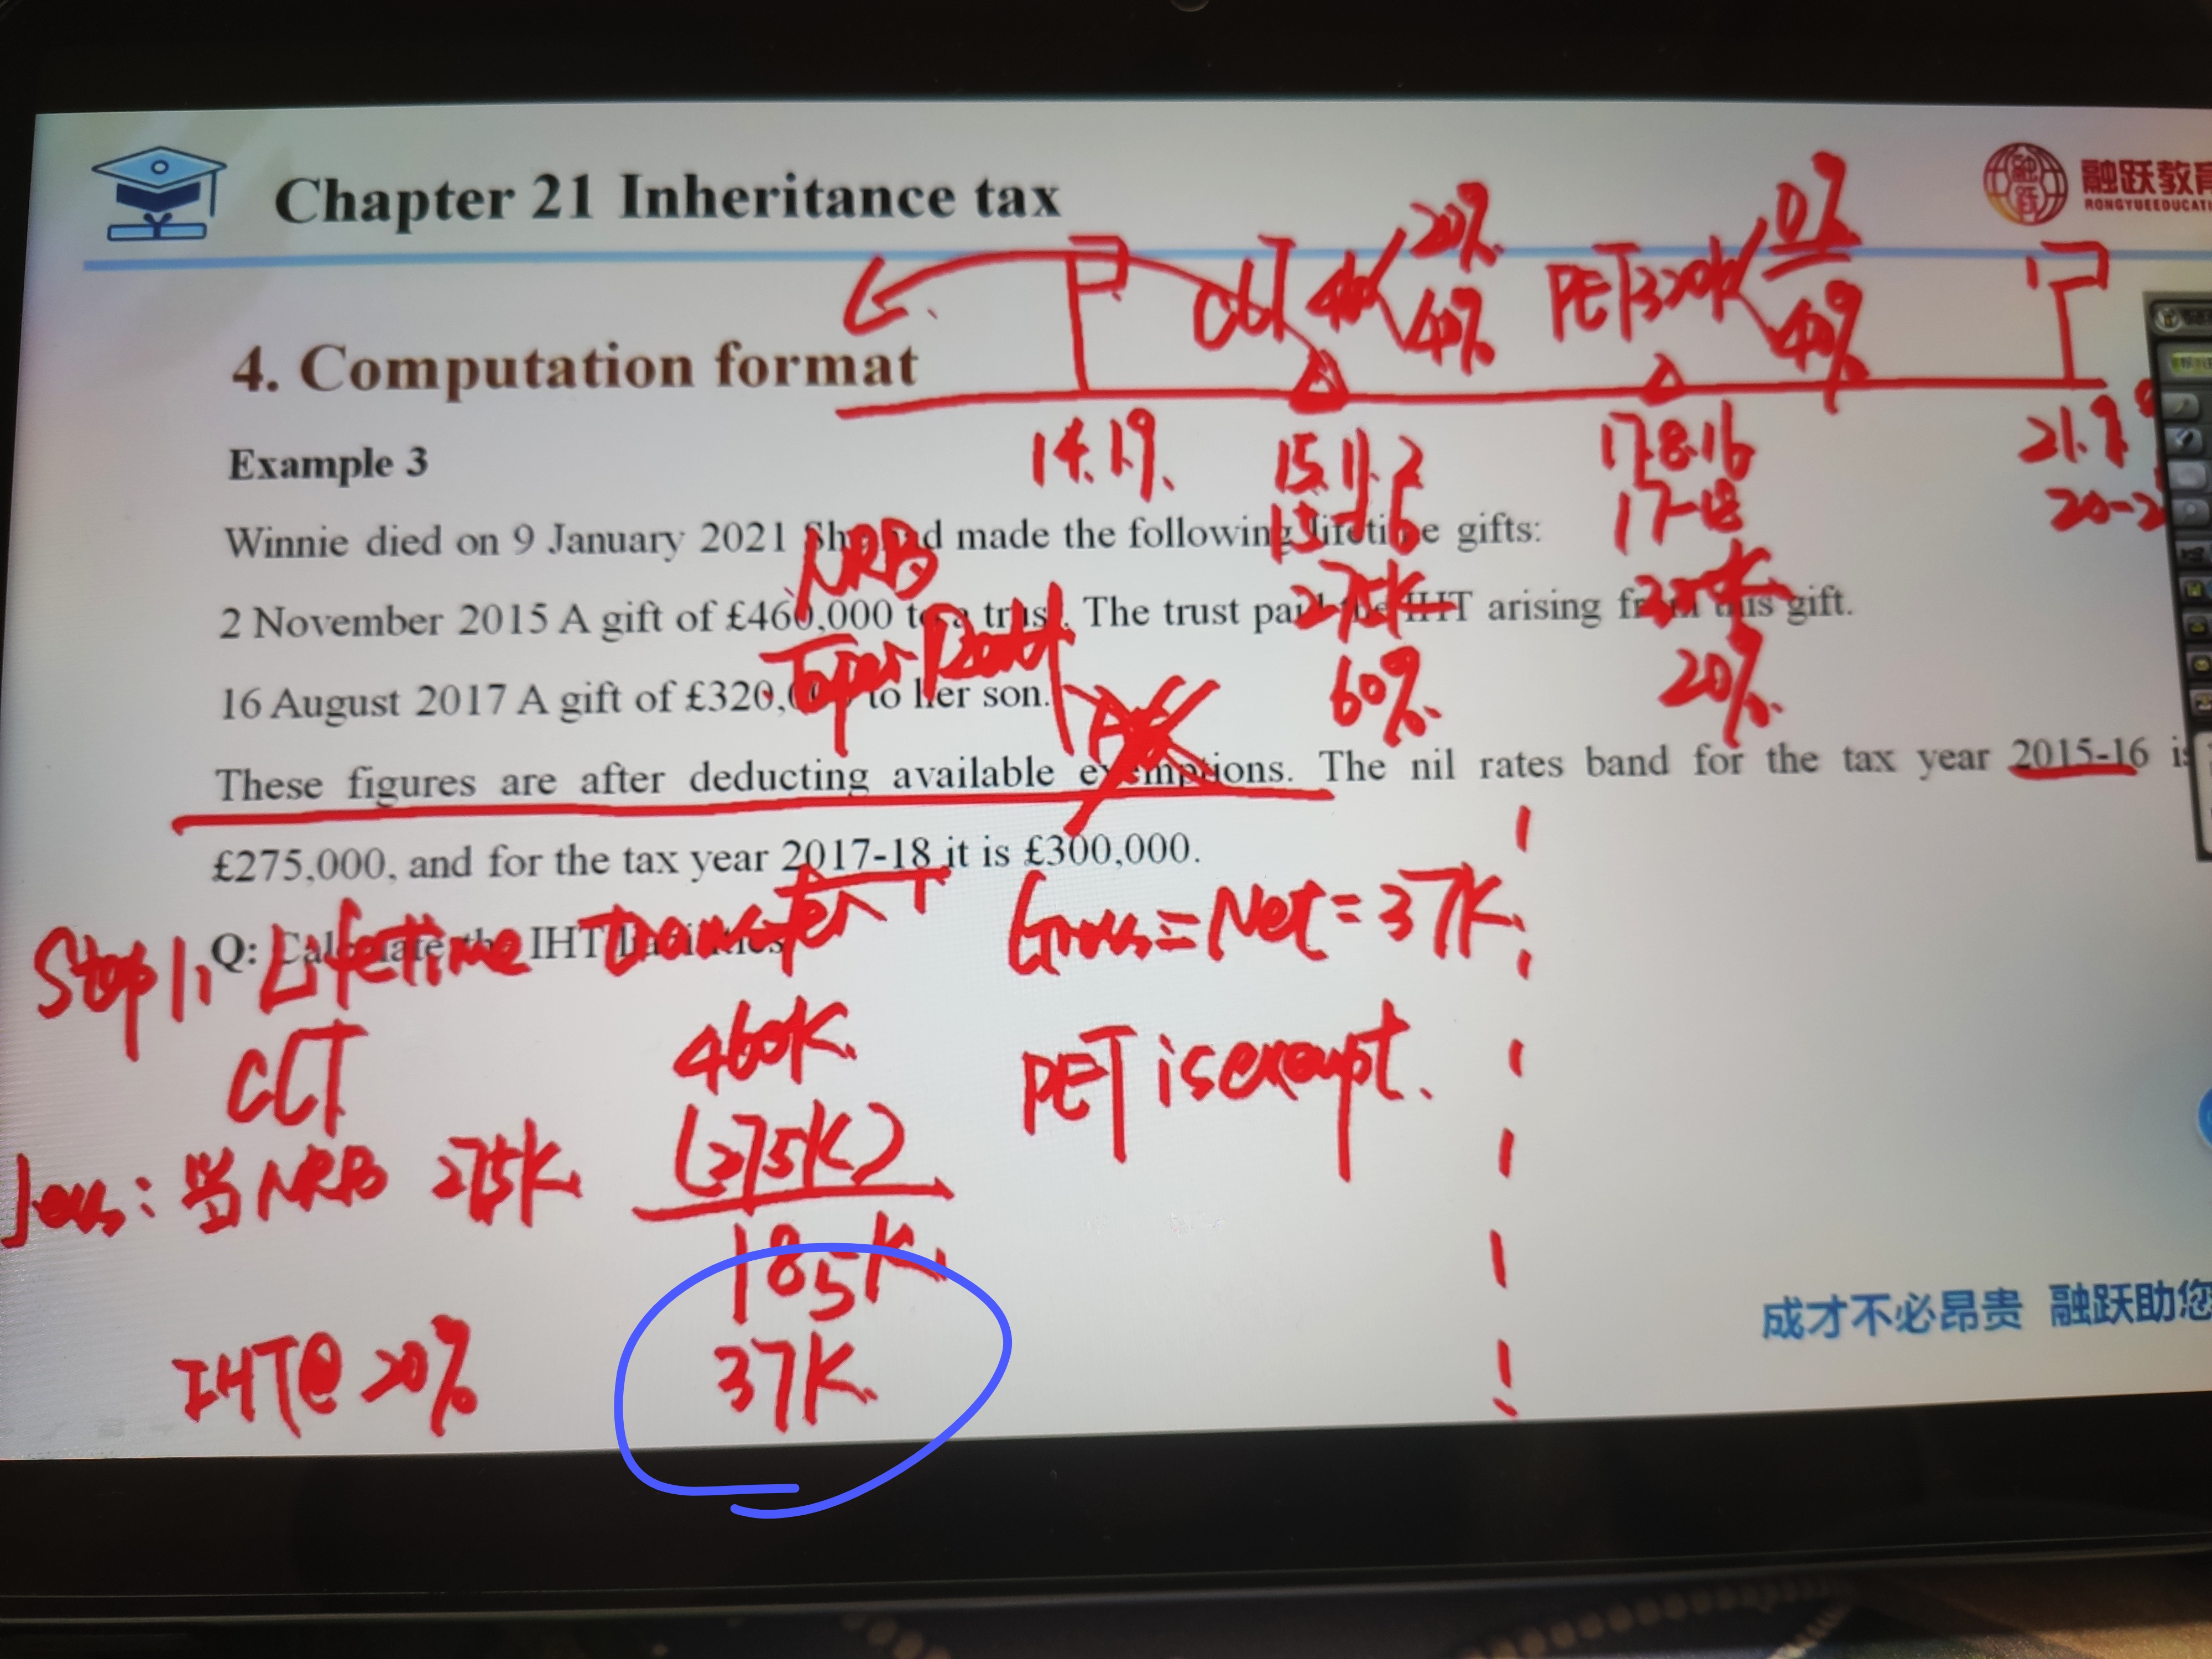 Chapter 21 Inheritance tax
融跃教育
RONGYUEEDUCATI
CLT 460K 20% 40%
PET 320K 0% 40%
4. Computation format
14.1.9.
15.11.2
17.8.16
21.1.9
Example 3
15-16
17-18
20-2
Winnie died on 9 January 2021 She had made the following lifetime gifts:
NRB
275K
2 November 2015 A gift of £460,000 to a trust. The trust paid the IHT arising from this gift.
Taper
60%
20%
16 August 2017 A gift of £320,000 to her son.
These figures are after deducting available exemptions. The nil rates band for the tax year 2015-16 is
£275,000, and for the tax year 2017-18 it is £300,000.
Q: Calculate the IHT liabilities
Step 1, Lifetime transfer
Gross = Net = 37K
460K
PET is exempt.
less: 当 NRB 275K (275K)
185K
IHT@ 20% 37K
成才不必昂贵 融跃助您